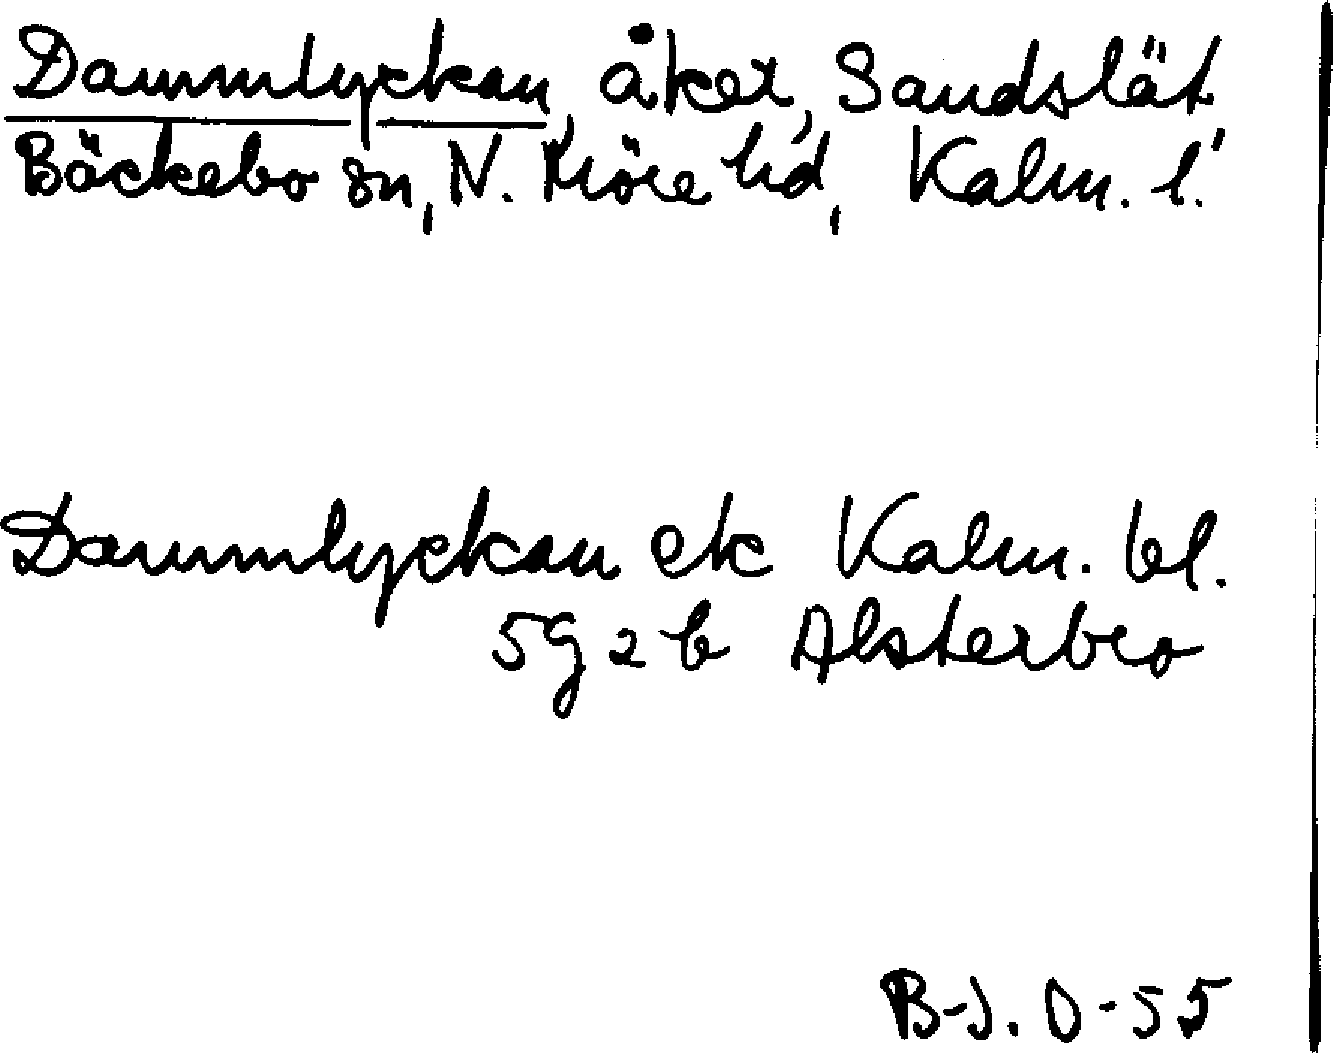 Dammlyckan, åker, Sandslät,
Bäckebo sn, N. Möre hd, Kalm. l.
Dammlyckan ek Kalm. bl.
5g2b Alsterbro
B-J. O-55